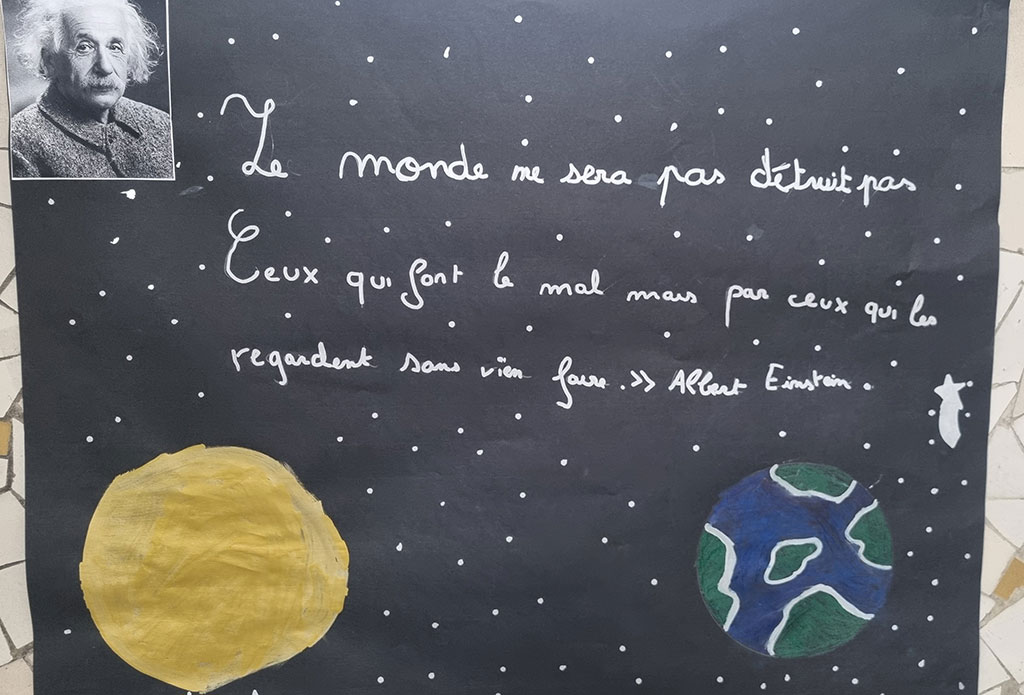 Le monde ne sera pas détruit pas
Ceux qui font le mal mais par ceux qui les
regardent sans vïen faire.>> Albert Einstein.